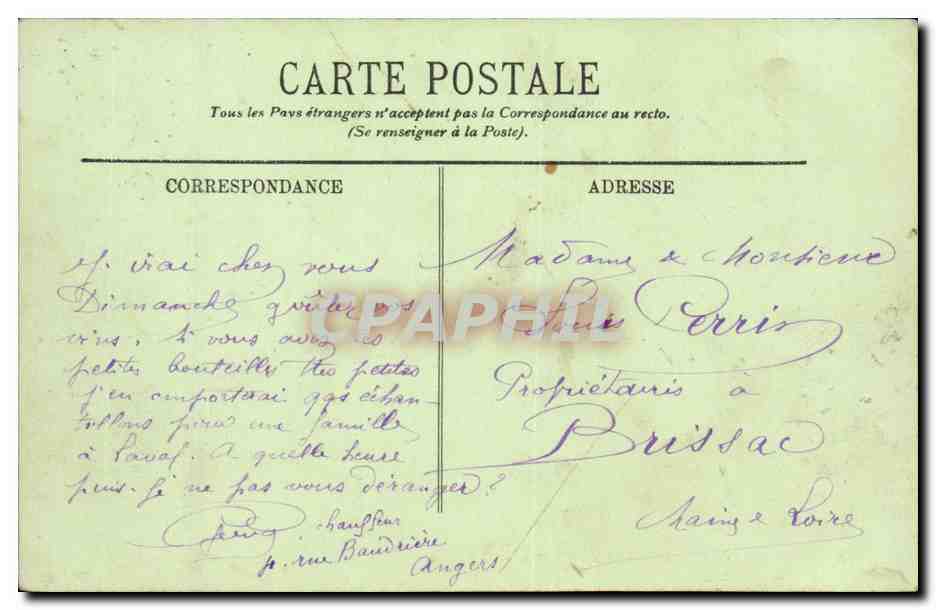 CARTE POSTALE
Tous les Pays étrangers n'acceptent pas la Correspondance au recto.
(Se renseigner à la Poste).
CORRESPONDANCE
J'irai chez vous
Dimanche goûter vos
vins. Si vous avez
petites bouteilles très petites
j'en emporterai échan-
tillons pour une famille
à Laval. A quelle heure
puis-je ne pas vous déranger ?
chausseur
rue Baudrière
Angers
ADRESSE
Madame & Monsieur
Louis Perrin
Propriétaires à
Brissac
Maine & Loire
CPAPHIL